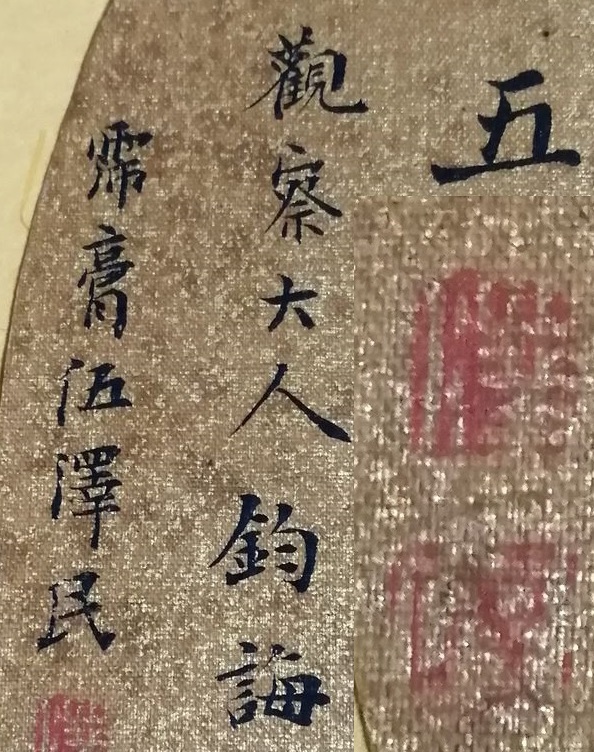 五
觀察大人鈞誨
霈膏伍澤民